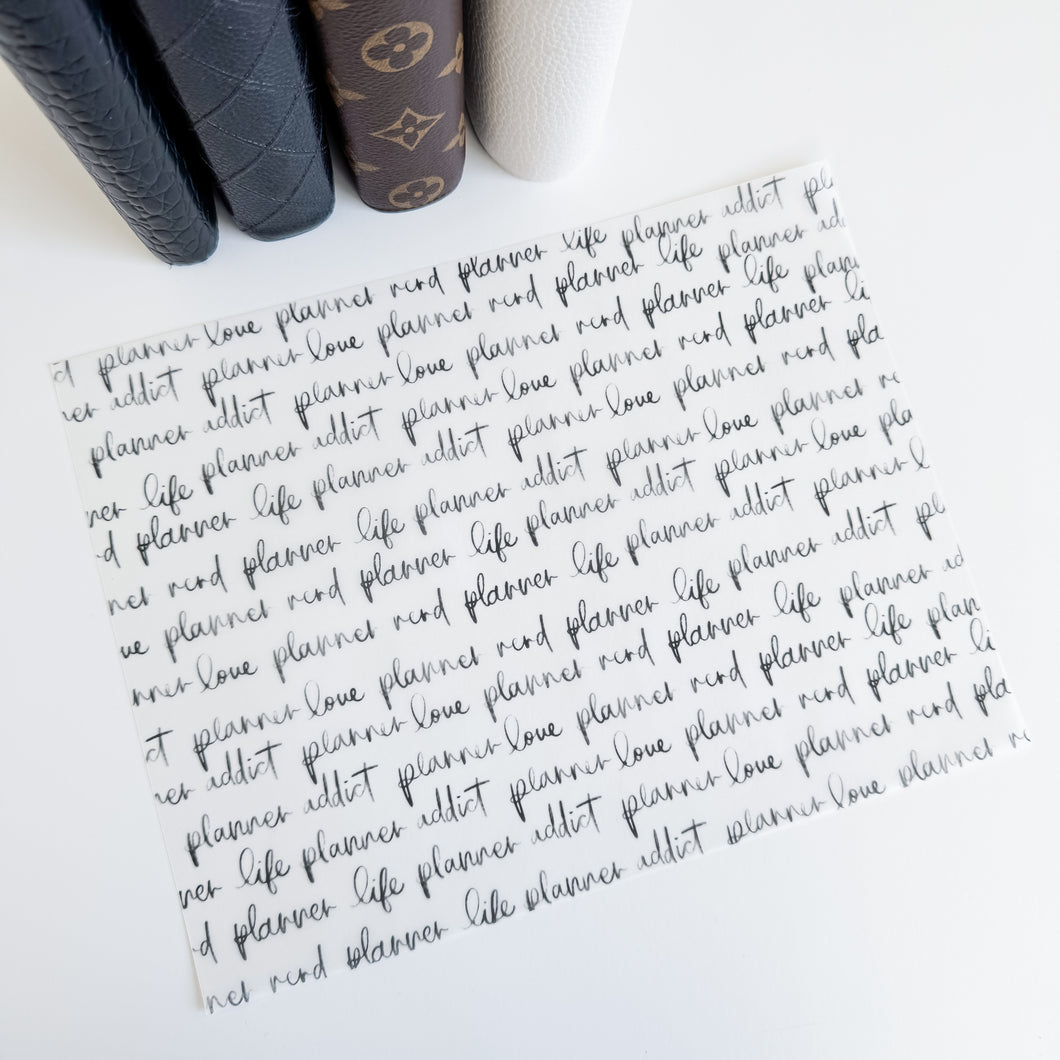 ct planner love planner nerd planner life planner addict pl
ner addict planner love planner nerd planner life planner add
planner addict planner love planner nerd planner life plan
ner life planner addict planner love planner nerd planner li
d planner life planner addict planner love planner nerd pla
ner nerd planner life planner addict planner love planner ne
ve planner nerd planner life planner addict planner love pla
nner love planner nerd planner life planner addict planner l
ct planner love planner nerd planner life planner addict pl
ner addict planner love planner nerd planner life planner ad
planner addict planner love planner nerd planner life plan
ner life planner addict planner love planner nerd planner li
d planner life planner addict planner love planner nerd pla
ner nerd planner life planner addict planner love planner ne